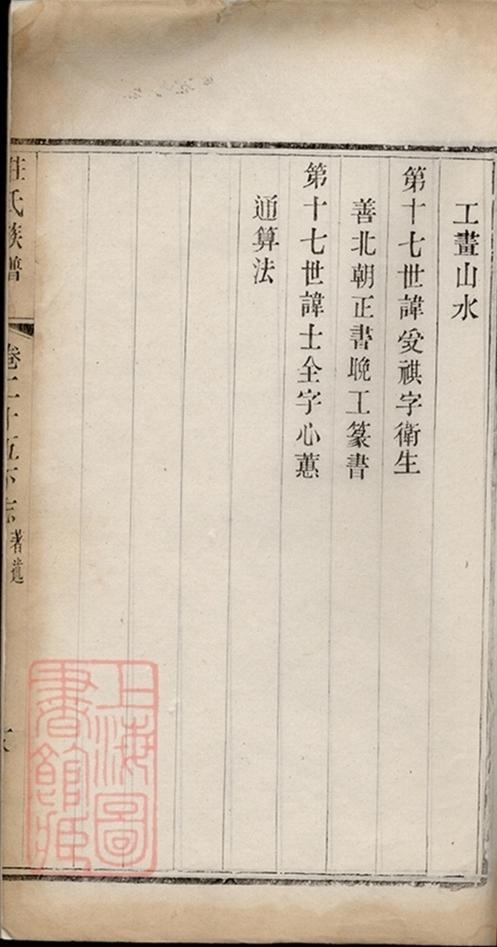 工畫山水
第十七世諱受祺字衛生
善北朝正書晚工篆書
第十七世諱士全字心蕙
通算法
莊氏族譜
卷二十五下
著遺
上海圖
書館藏